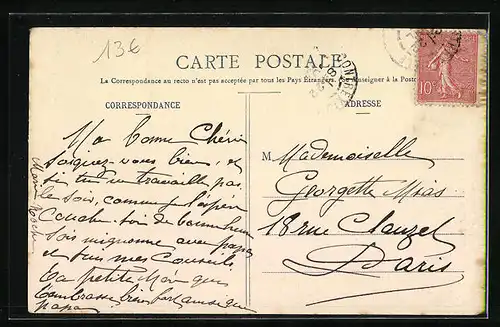 13€
CARTE POSTALE
La Correspondance au recto n'est pas acceptée par tous les Pays Étrangers. Renseigner à la Poste
CORRESPONDANCE
ADRESSE
10c
Ma bonne Chérie
Soignez-vous bien, et
si tu travaille pas
le soir, comme j'espère
Couche toi de bonne heure
Sois mignonne avec papa
et suis mes Conseils
Ta petite Mère qui
t'embrasse bien fort ainsi que
papa
M. Mademoiselle
Georgette Mias
18 rue Clauzel
Paris